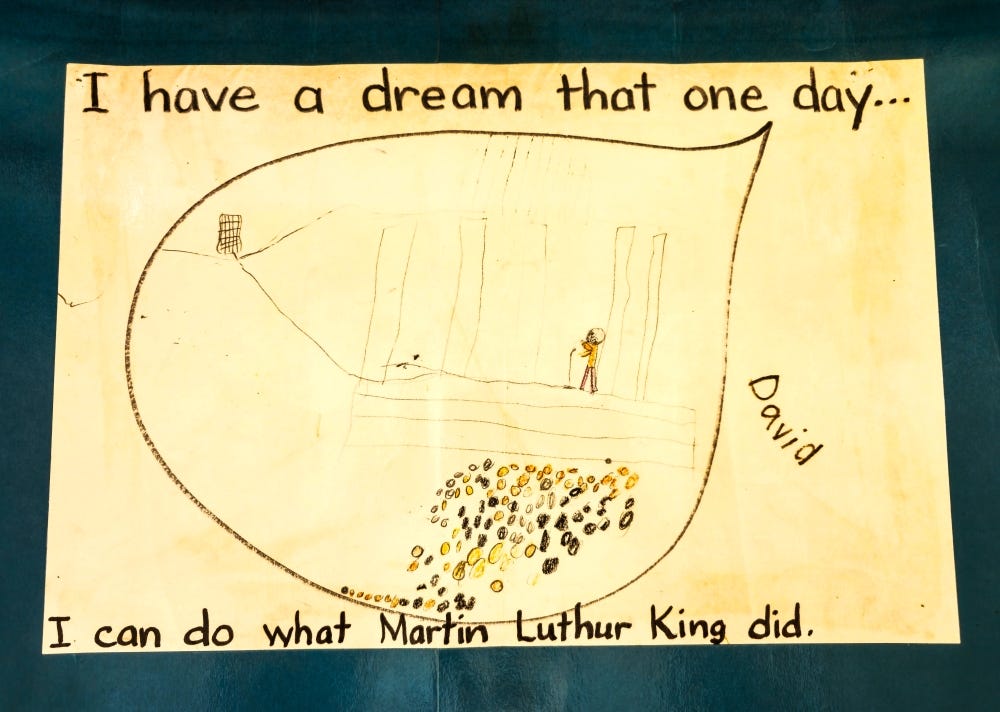 I have a dream that one day...
David
I can do what Martin Luthur King did.